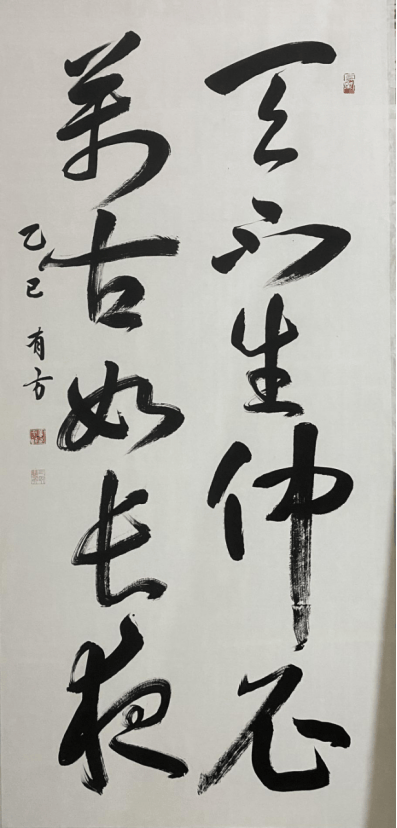 天不生仲尼
萬古如長夜
乙巳 有方